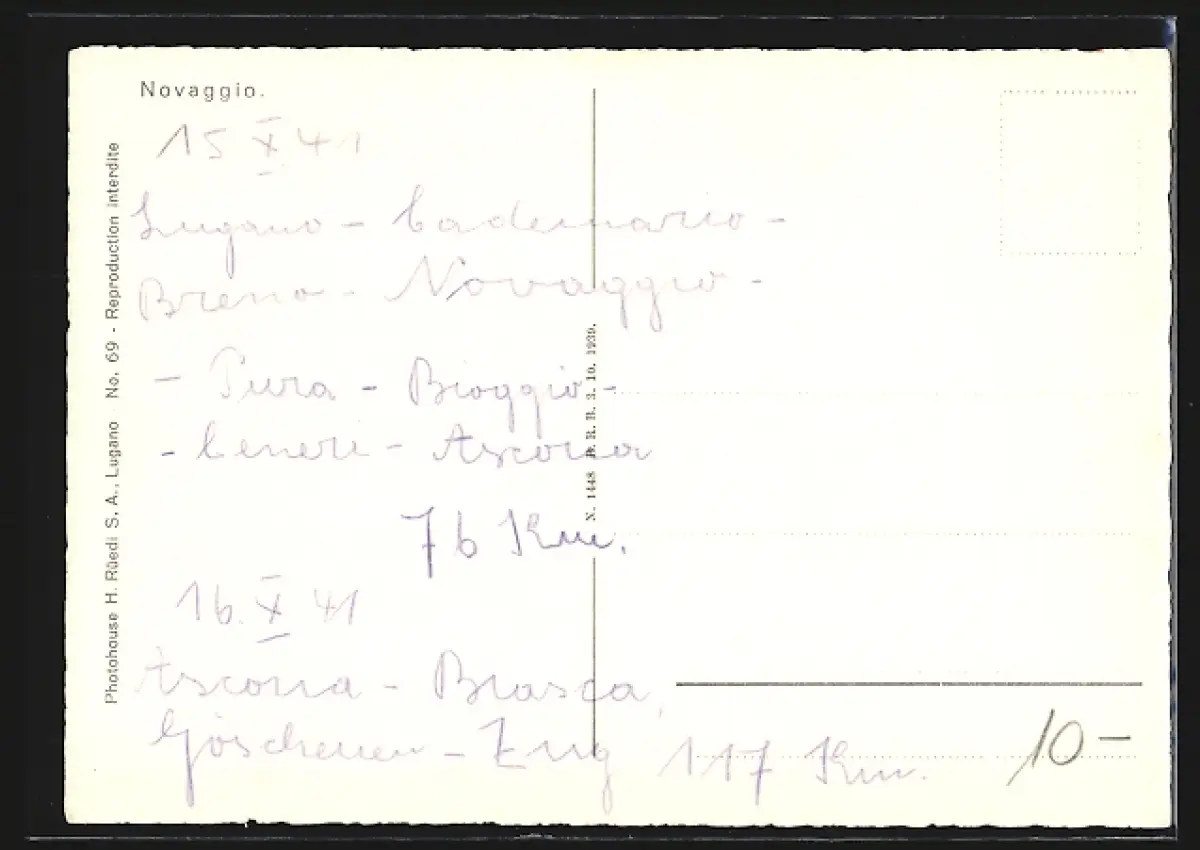 Novaggio.
15 X 41
Lugano - Cademario -
Breno - Novaggio -
- Pura - Bioggio -
- Ceneri - Ascona
76 Km.
16. X 41
Ascona - Biasca,
Göschenen - Zug 117 Km.
10-
Photohouse H. Rüedi S. A., Lugano No. 69 - Reproduction interdite
N. 1448 B. R. B. 3. 10. 1939.